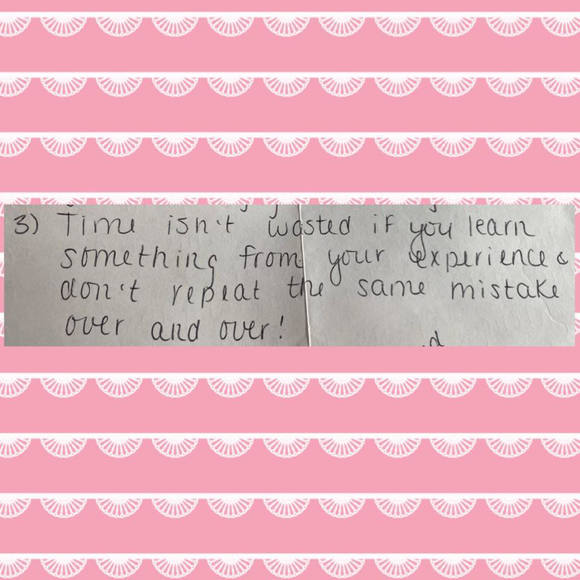 3) Time isn't wasted if you learn
something from your experience &
don't repeat the same mistake
over and over!